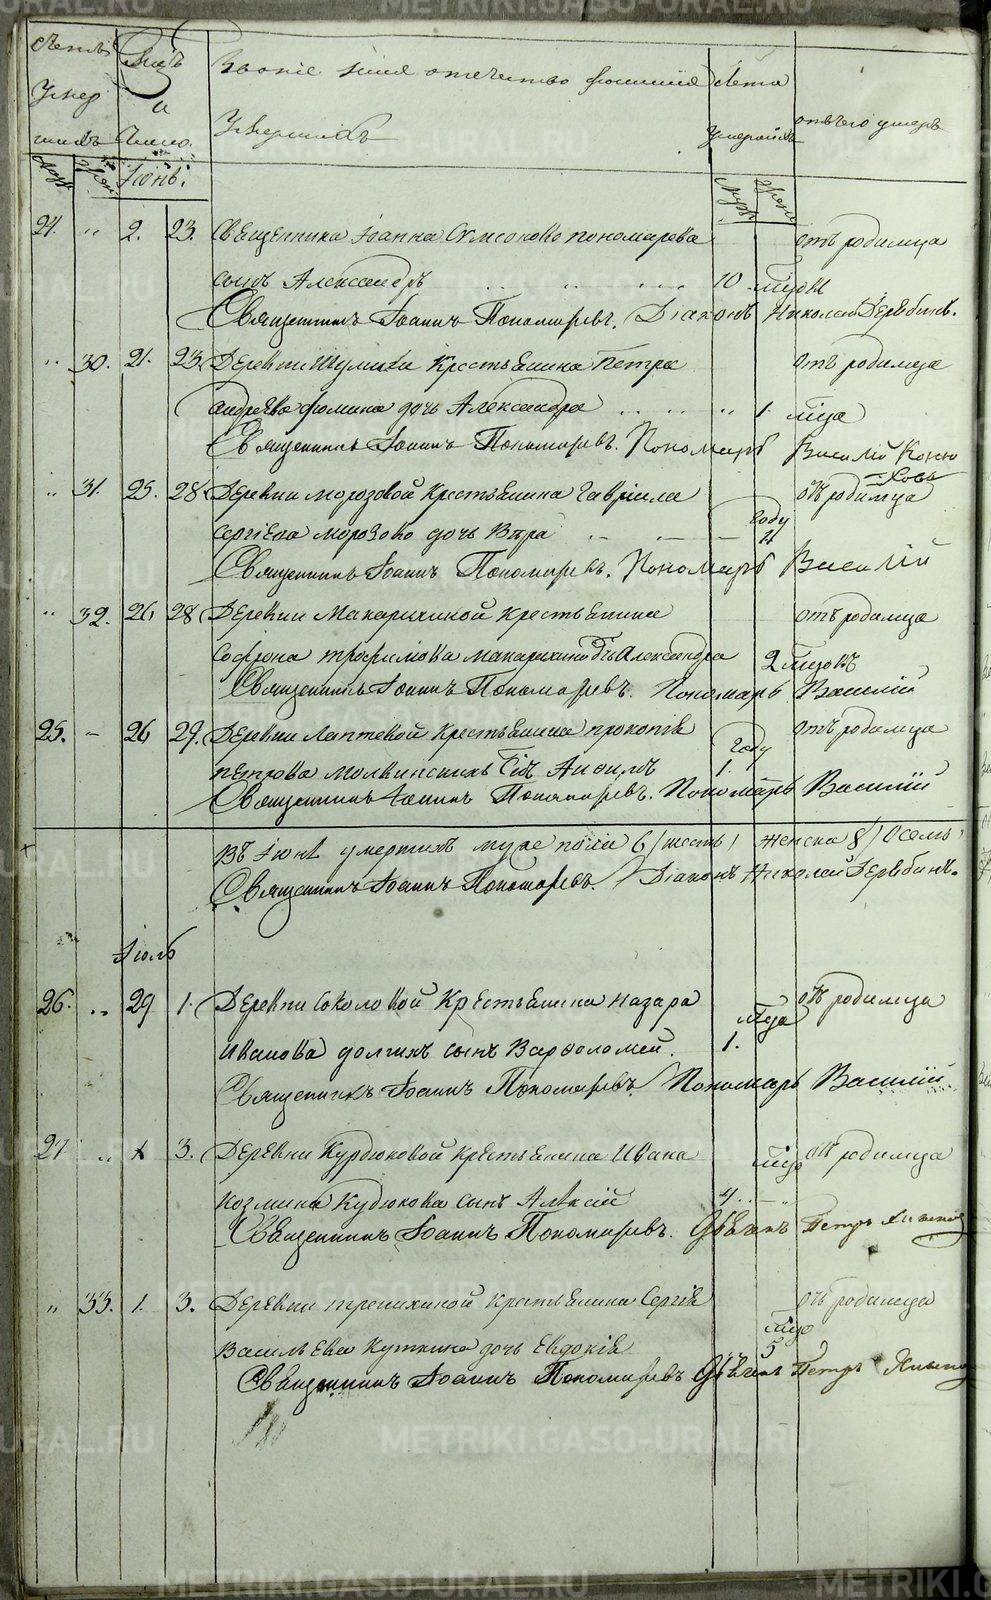 METRIKI.GASO-URAL.RU
Счетъ Мѣсяцъ Званіе имя отечество фамилія Лета
Умер и
шихъ Число. Умершихъ Умершихъ отъ чего умеръ
Муж. Жен. Іюнь. Муж. Жен.
24. " 2. 23. Священника Іоанна Симеонова пономарева отъ родимца
сынъ Александръ 10 мцовъ
Священникъ Іоаннъ Пономаревъ. Діаконъ Николай Дерябинъ.
" 30. 21. 23. Деревни Шумихи Крестьянина Петра отъ родимца
андреева фомина дочь Александра " 1. мца
Священникъ Іоаннъ Пономаревъ. Пономарь Василій Коню
-ховъ
" 31. 25. 28. Деревни морозовой Крестьянина Гавріила отъ родимца
сергіева морозова дочь Вѣра году
Священникъ Іоаннъ Пономаревъ. Пономарь Василій
" 32. 26. 28. Деревни Макарихиной крестьянина отъ родимца
трофимова макарихина дчь Александра 2 мцовъ
Священникъ Іоаннъ Пономаревъ. Пономарь Василій
25. - 26 29. Деревни Лаптевой Крестьянина прокопія отъ родимца
году
петрова молвинскихъ 1.
Священникъ Іоаннъ Пономаревъ. Пономарь Василій
Въ Іюнѣ умершихъ муже пола 6 /шесть/ Женска 8 /Осемь/
Священникъ Іоаннъ Пономаревъ. Діаконъ Николай Дерябинъ.
Іюль
26. " 29. 1. Деревни Соколовой Крестьянина назара отъ родимца
мца
иванова долгихъ сынъ Варфоломей. 1.
Священникъ Іоаннъ Пономаревъ. Пономарь Василій
27 " 3. Деревни Курдюковой крестьянина Ивана отъ родимца
козмина Кудюкова сынъ Алексій 4
Священникъ Іоаннъ Пономаревъ. Дьячекъ Петръ
" 33. 1. 3. Деревни трепихиной крестьянина Сергія отъ родимца
Васильева Куткина дочь Евдокія 5
Священникъ Іоаннъ Пономаревъ Дьячекъ Петръ
METRIKI.GASO-URAL.RU